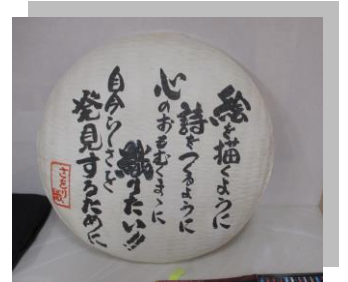 絵を描くように
詩をつくるように
心のおもむくまゝに
織りたい!!
自分らしさを
発見するために